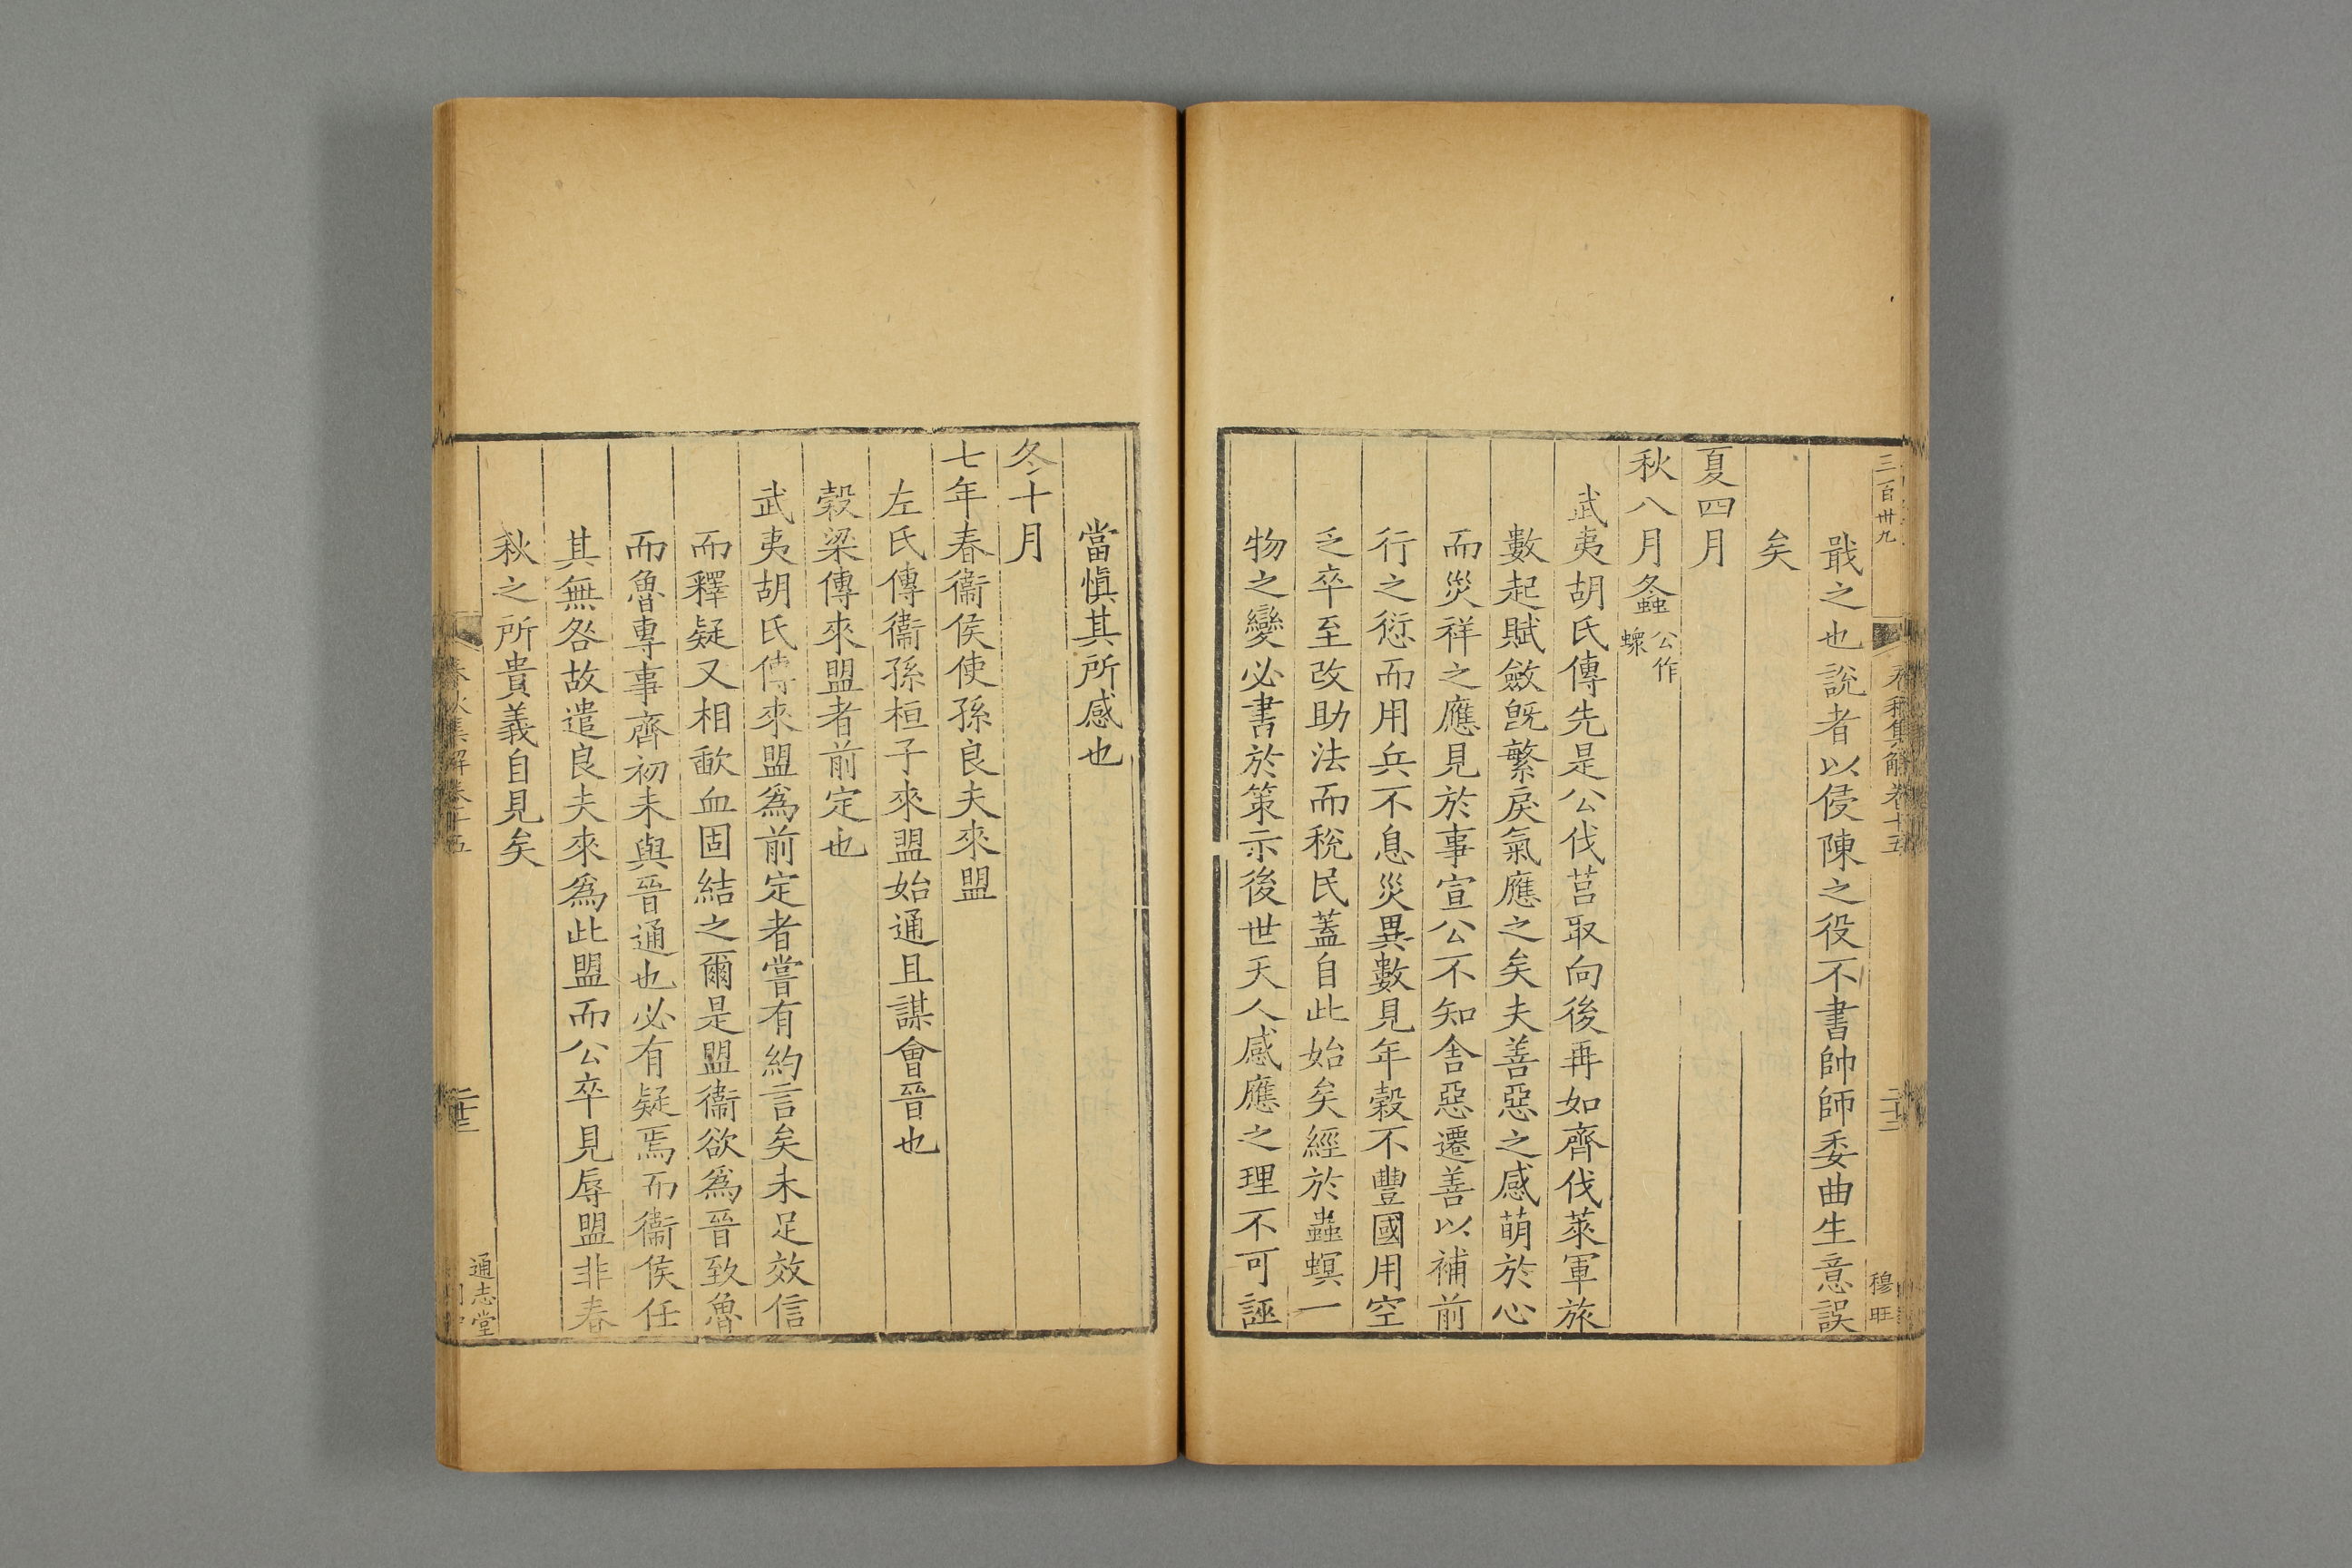 三百卅九
春秋集解卷十五
二十二
穆旺
戢之也說者以侵陳之役不書帥師委曲生意誤
矣
夏四月
秋八月螽公作
蠓
武夷胡氏傳先是公伐莒取向後再如齊伐萊軍旅
數起賦斂旣繁戾氣應之矣夫善惡之感萌於心
而災祥之應見於事宣公不知舍惡遷善以補前
行之愆而用兵不息災異數見年穀不豐國用空
乏卒至改助法而稅民蓋自此始矣經於蟲螟一
物之變必書於策示後世天人感應之理不可誣
當愼其所感也
冬十月
七年春衞侯使孫良夫來盟
左氏傳衞孫桓子來盟始通且謀會晉也
穀梁傳來盟者前定也
武夷胡氏傳來盟爲前定者嘗有約言矣未足效信
而釋疑又相歃血固結之爾是盟衞欲爲晉致魯
而魯專事齊初未與晉通也必有疑焉而衞侯任
其無咎故遣良夫來爲此盟而公卒見辱盟非春
秋之所貴義自見矣
春秋集解卷十五
二十三
通志堂